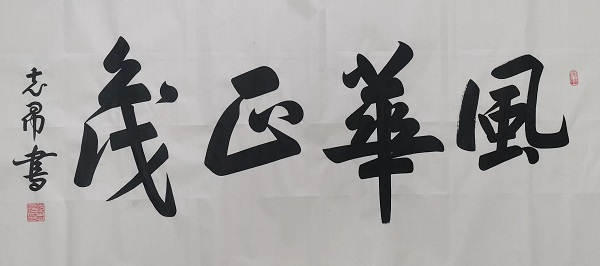 風華正茂
志昂書